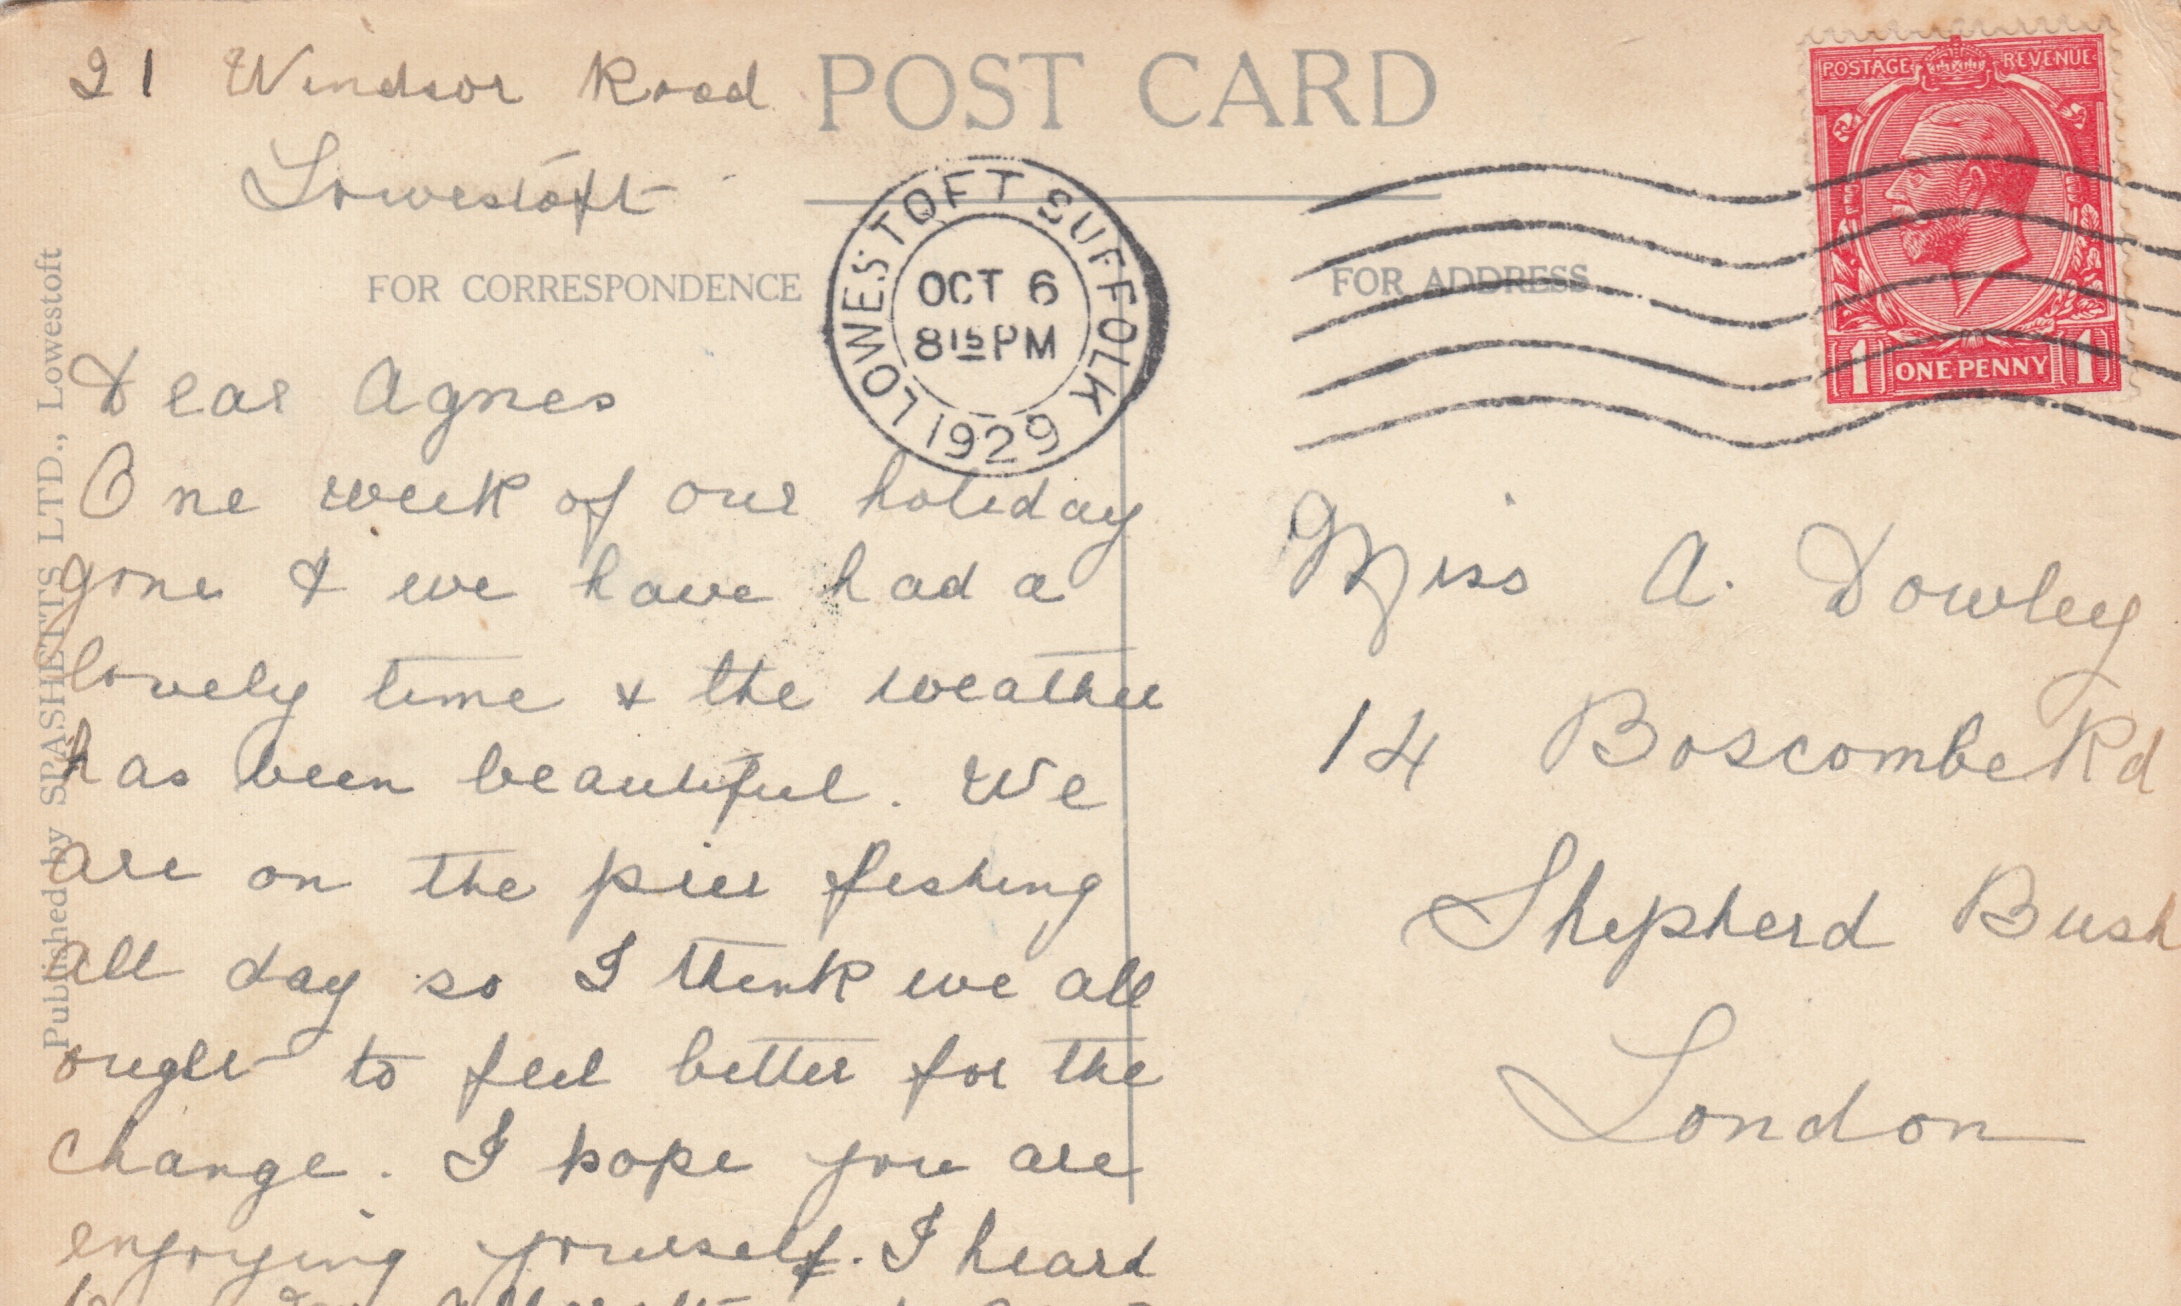 21 Windsor Road
Lowestoft
POST CARD
FOR CORRESPONDENCE
FOR ADDRESS
LOWESTOFT SUFFOLK
OCT 6
8 15 PM
1929
POSTAGE REVENUE
1 ONE PENNY 1
Published by SPASHETTS LTD., Lowestoft
Dear Agnes
One week of our holiday
gone & we have had a
lovely time & the weather
has been beautiful. We
are on the pier fishing
all day so I think we all
ought to feel better for the
change. I hope you are
enjoying yourself. I heard
Miss A. Dowley
14 Boscombe Rd
Shepherd Bush
London